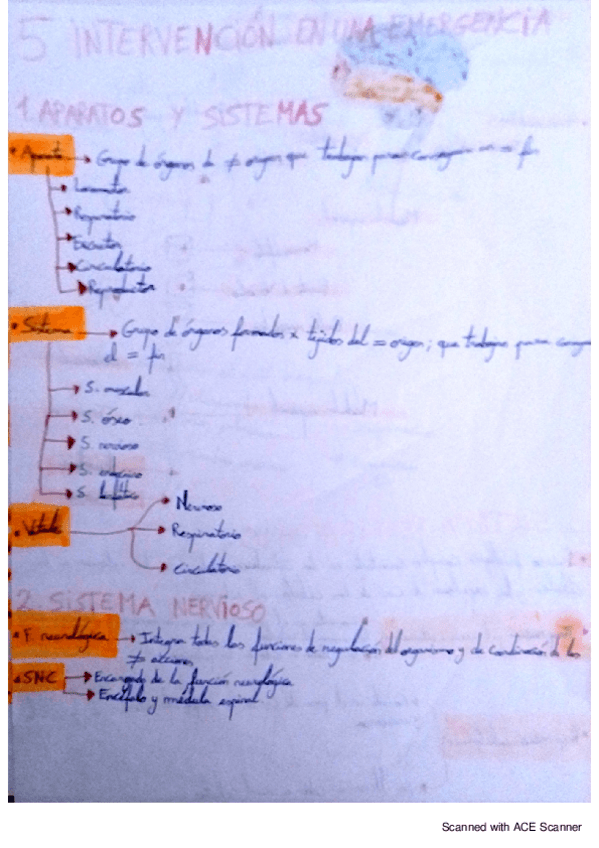 5 INTERVENCIÓN EN UNA EMERGENCIA
1. APARATOS Y SISTEMAS
• Aparato → Grupo de órganos de ≠ origen que trabajan para conseguir un = fin
→ Locomotor
→ Respiratorio
→ Excretor
→ Circulatorio
→ Reproductor
• Sistema → Grupo de órganos formados x tejidos del = origen, que trabajan para
el = fin
→ S. muscular
→ S. óseo
→ S. nervioso
→ S. endocrino
→ S. linfático
• Vitales → Nervioso
→ Respiratorio
→ Circulatorio
2. SISTEMA NERVIOSO
• F. neurológica → Integra todas las funciones de regulación del organismo y de coordinación de las
≠ acciones
• SNC → Encargado de la función neurológica
→ Encéfalo y médula espinal.
Scanned with ACE Scanner